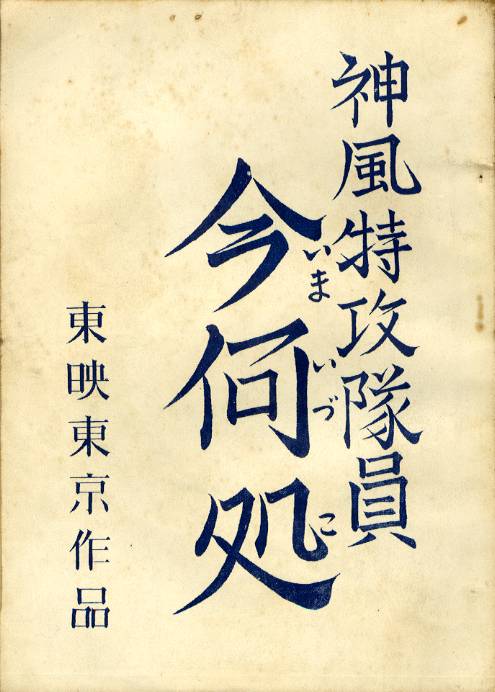 神風特攻隊員
今何処
いまいづこ
東映東京作品